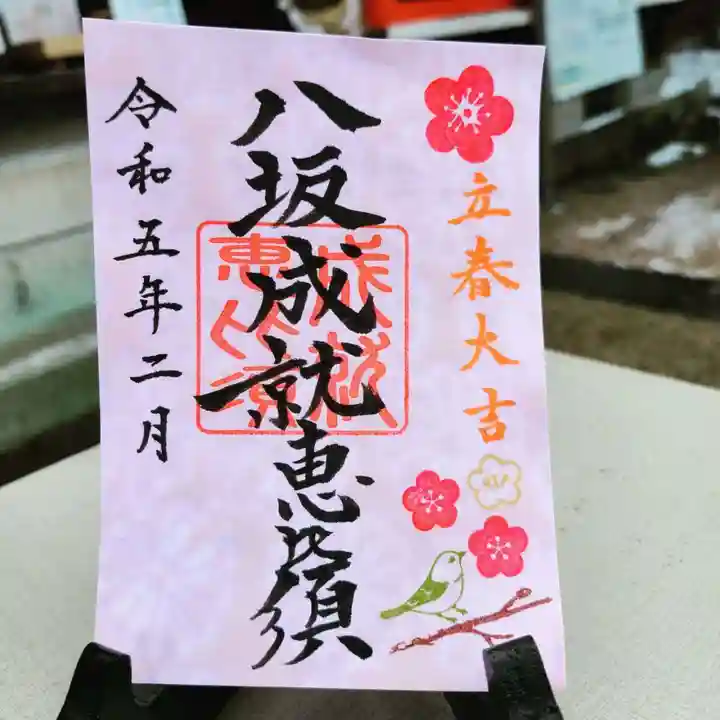 立春大吉
八坂成就恵比須
令和五年二月